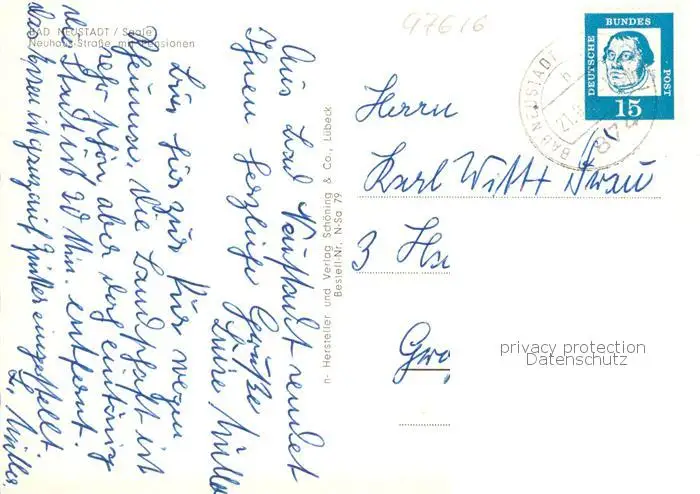 BAD NEUSTADT / Saale
Neuhaus-Straße mit Pensionen
47616
Aus Bad Neustadt sendet
Ihnen herzliche Grüße
Luise Müller
Bin hier zur Kur wegen
Rheuma, die Landschaft ist
sehr schön aber doch eintönig
die Stadt ist 20 Min. entfernt.
das Essen ist ganz auf Zucker eingestellt
L. Müller
n- Hersteller und Verlag Schöning & Co., Lübeck
Bestell-Nr. N-Sa 79
DEUTSCHE BUNDES POST
15
BAD NEUSTADT
21.
Herrn
Karl Witt + Frau
3 Ha
Gro
privacy protection
Datenschutz